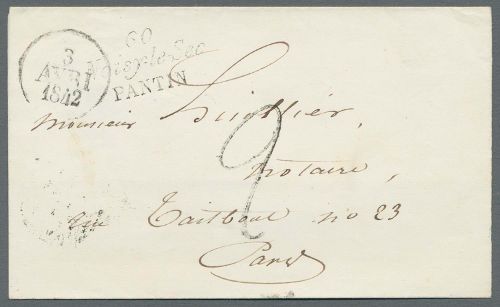 3
AVRI
1842
60
Noisy-le-Sec
PANTIN
Monsieur
notaire,
rue Taitbout no 23
Paris
2